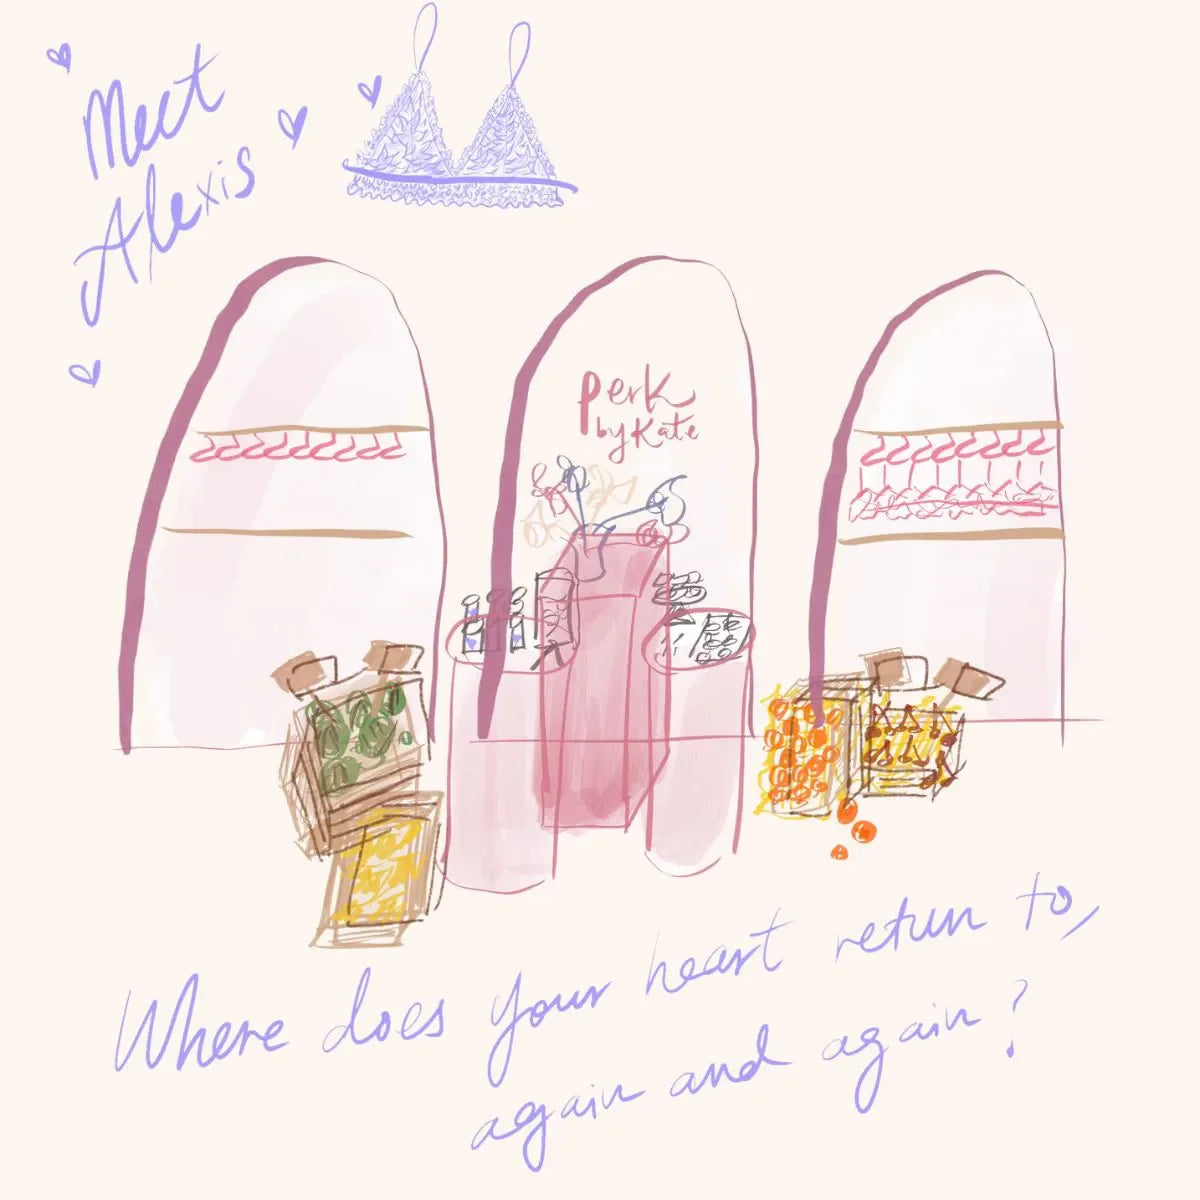 Meet
Alexis
perk
by Kate
Where does your heart return to,
again and again?